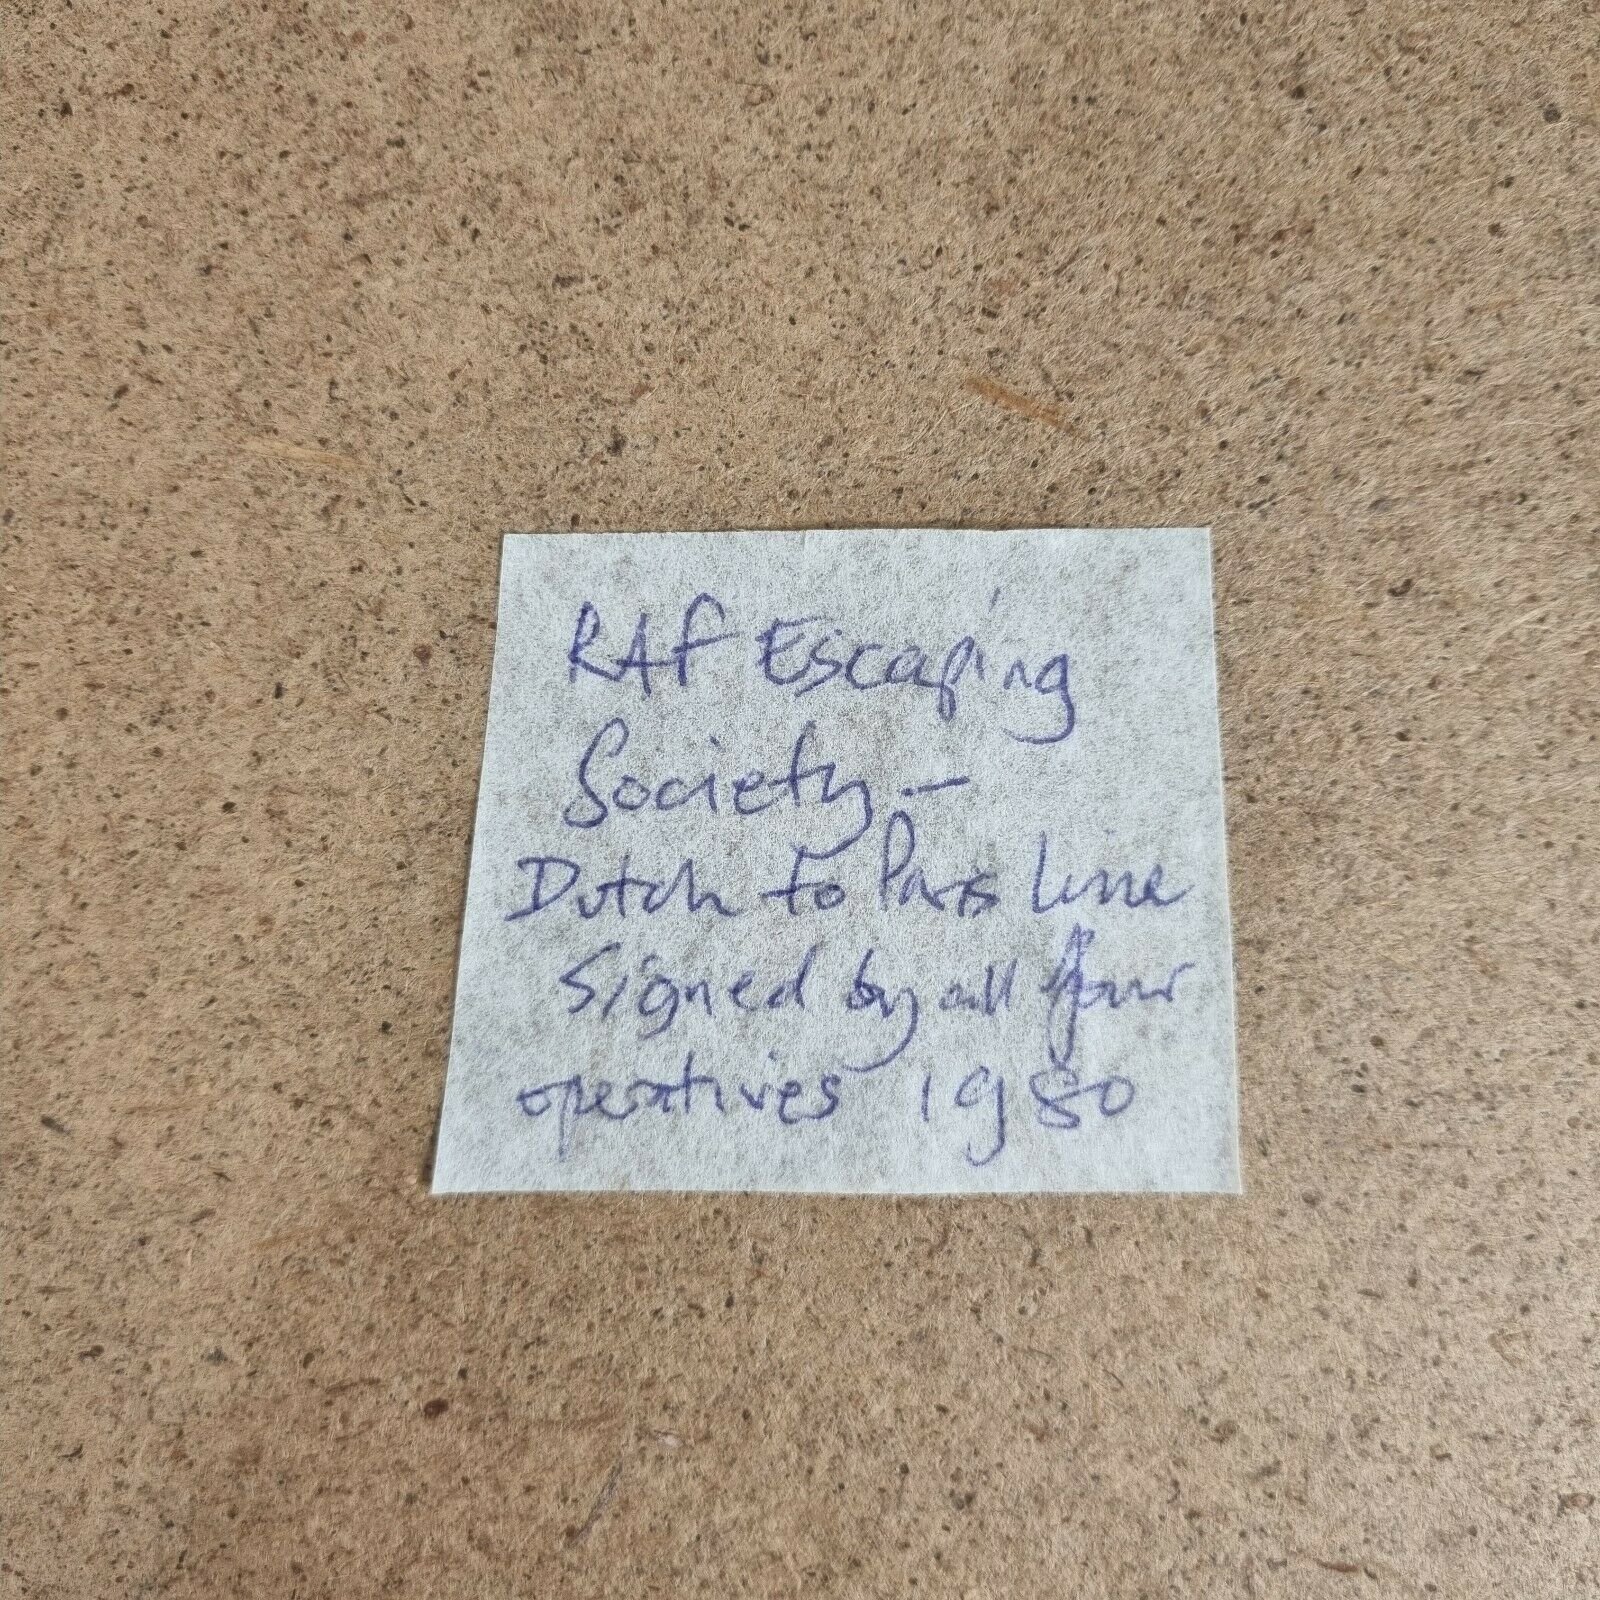 RAF Escaping
Society -
Dutch to Paris Line
Signed by all four
operatives 1980